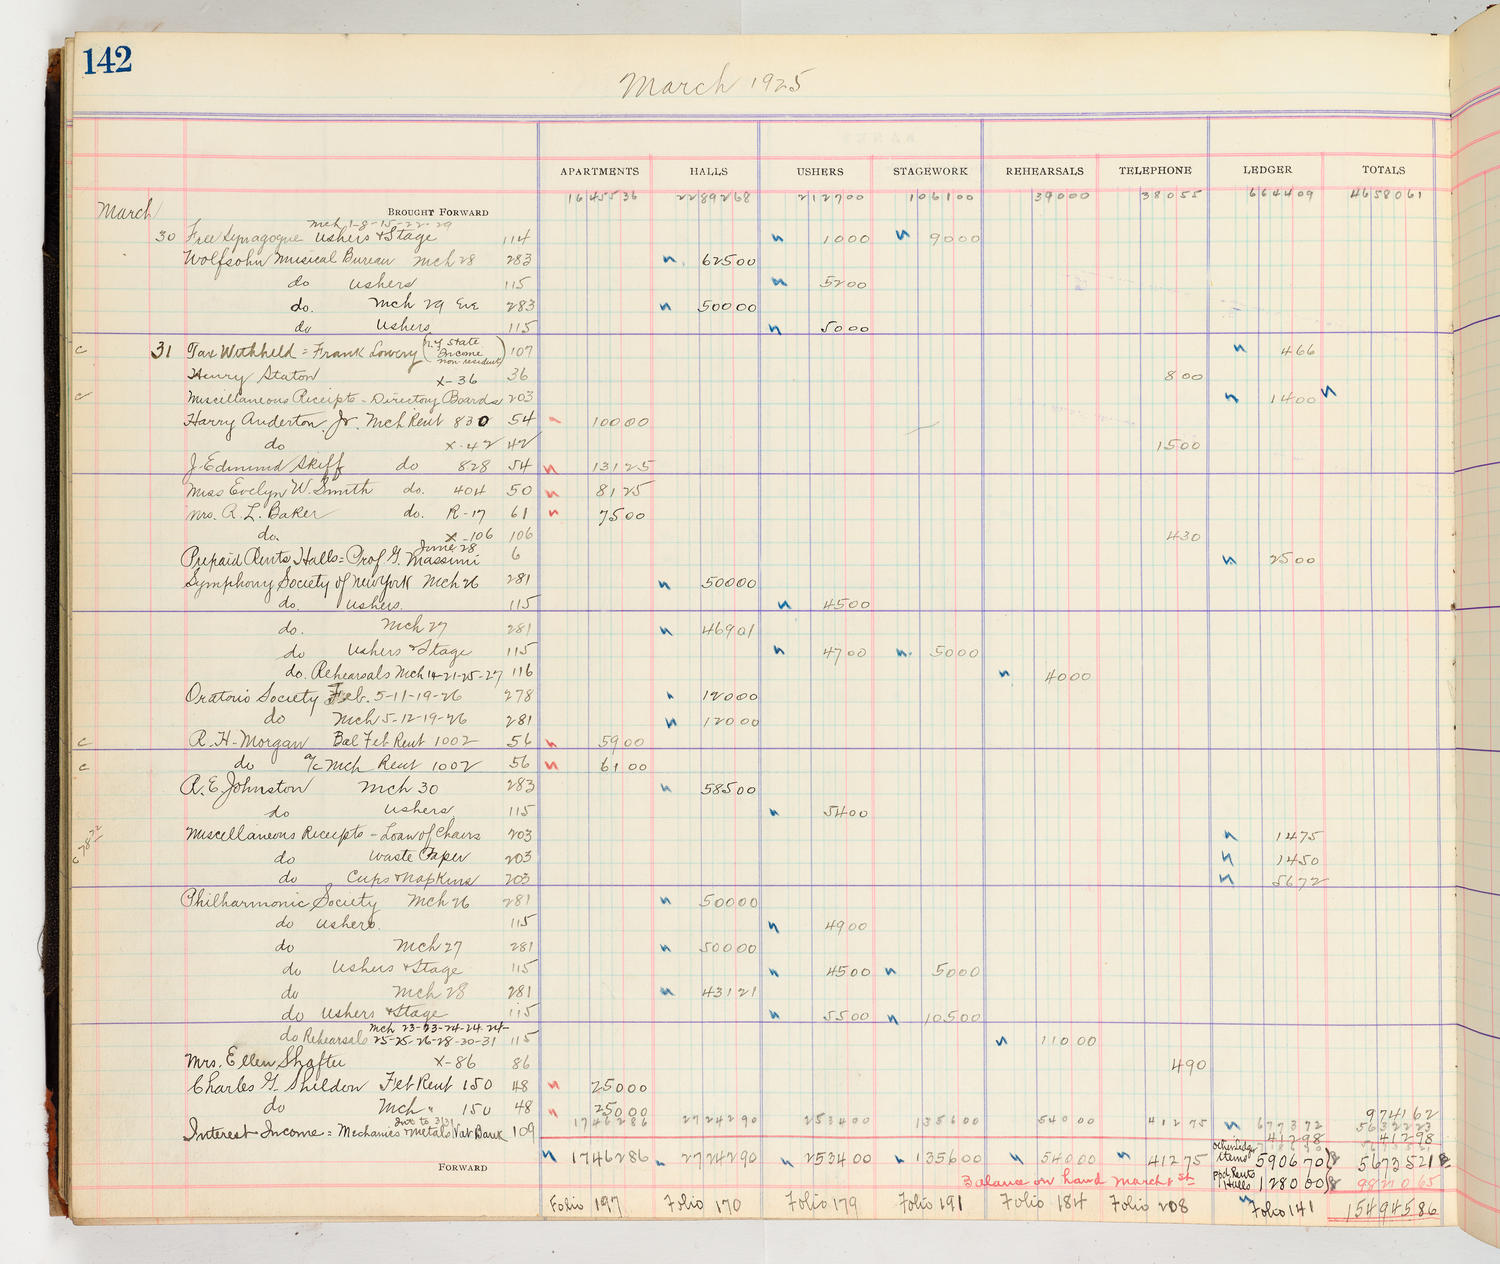 142
March 1925
APARTMENTS HALLS USHERS STAGEWORK REHEARSALS TELEPHONE LEDGER TOTALS
March BROUGHT FORWARD 1645536 2289268 212700 106100 39000 38055 664409 4658061
Mch 1-8-15-22-29
30 Free Synagogue Ushers & Stage 114 1000 9000
Wolfsohn Musical Bureau Mch 28 283 62500
do Ushers 115 5200
do. Mch 29 Eve 283 50000
do Ushers 115 5000
c 31 Tax Withheld = Frank Lowery (N.Y State Income non resident) 107 466
Henry Staton X-36 36 800
c Miscellaneous Receipts - Directory Boards 203 1400
Harry Anderton, Jr. Mch Rent 830 54 10000
do X-42 42 1500
J. Edmund Skiff do 828 54 13125
Miss Evelyn W. Smith do. 404 50 8125
Mrs. A. L. Baker do. R-17 61 7500
do. X-106 106 430
June 28
Prepaid Rents Halls = Prof. G. Massimi 6 2500
Symphony Society of New York Mch 26 281 50000
do. Ushers. 115 4500
do. Mch 27 281 46901
do Ushers & Stage 115 4700 5000
do. Rehearsals Mch 14-21-25-27 116 4000
Oratorio Society Feb. 5-11-19-26 278 12000
do Mch 5-12-19-26 281 12000
c R. H. Morgan Bal Feb Rent 1002 56 5900
c do a/c Mch Rent 1002 56 6100
A. E. Johnston Mch 30 283 58500
do Ushers 115 5400
Miscellaneous Receipts - Loan of Chairs 203 1475
do Waste Paper 203 1450
do Cups & Napkins 203 5672
Philharmonic Society Mch 26 281 50000
do Ushers. 115 4900
do Mch 27 281 50000
do Ushers & Stage 115 4500 5000
do Mch 28 281 43121
do Ushers & Stage 115 5500 10500
Mch 23-23-24-24-24-
do Rehearsals 25-25-26-28-30-31 115 11000
Mrs. Ellen Shafter X-86 86 490
Charles G. Sheldon Feb Rent 150 48 25000
do Mch " 150 48 25000 974162
1746286 2724290 253400 135600 54000 41275 677372 5632223
Int to 3/31
Interest Income = Mechanics & Metals Nat Bank 109 41298 41298
FORWARD 1746286 2724290 253400 135600 54000 41275 Other Ledger Items 590670 5673521
Balance on hand March 1st Ppd Rents Halls 128000 9821065
Folio 197 Folio 170 Folio 179 Folio 191 Folio 184 Folio 208 Folio 141 15494586